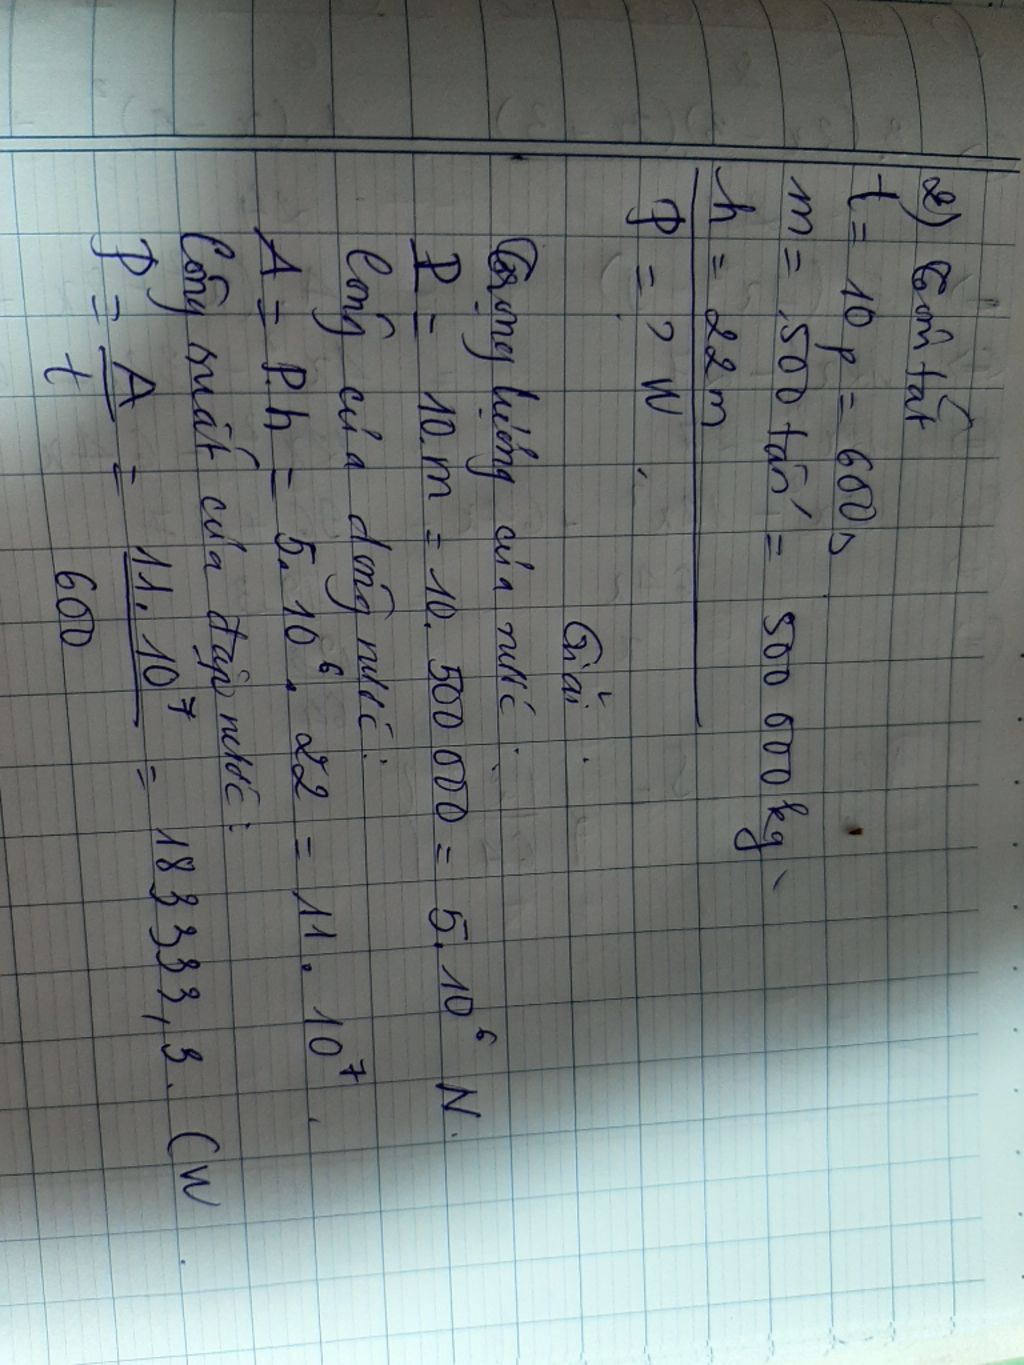 2) Tóm tắt
t = 10p = 600s
m = 500 tấn = 500 000 kg
h = 22m
P = ? W
Giải:
Trọng lượng của nước:
P = 10.m = 10.500 000 = 5.10⁶ N.
Công của dòng nước:
A = P.h = 5.10⁶.22 = 11.10⁷.
Công suất của đập nước:
P = A/t = 11.10⁷/600 = 183333,3. (W